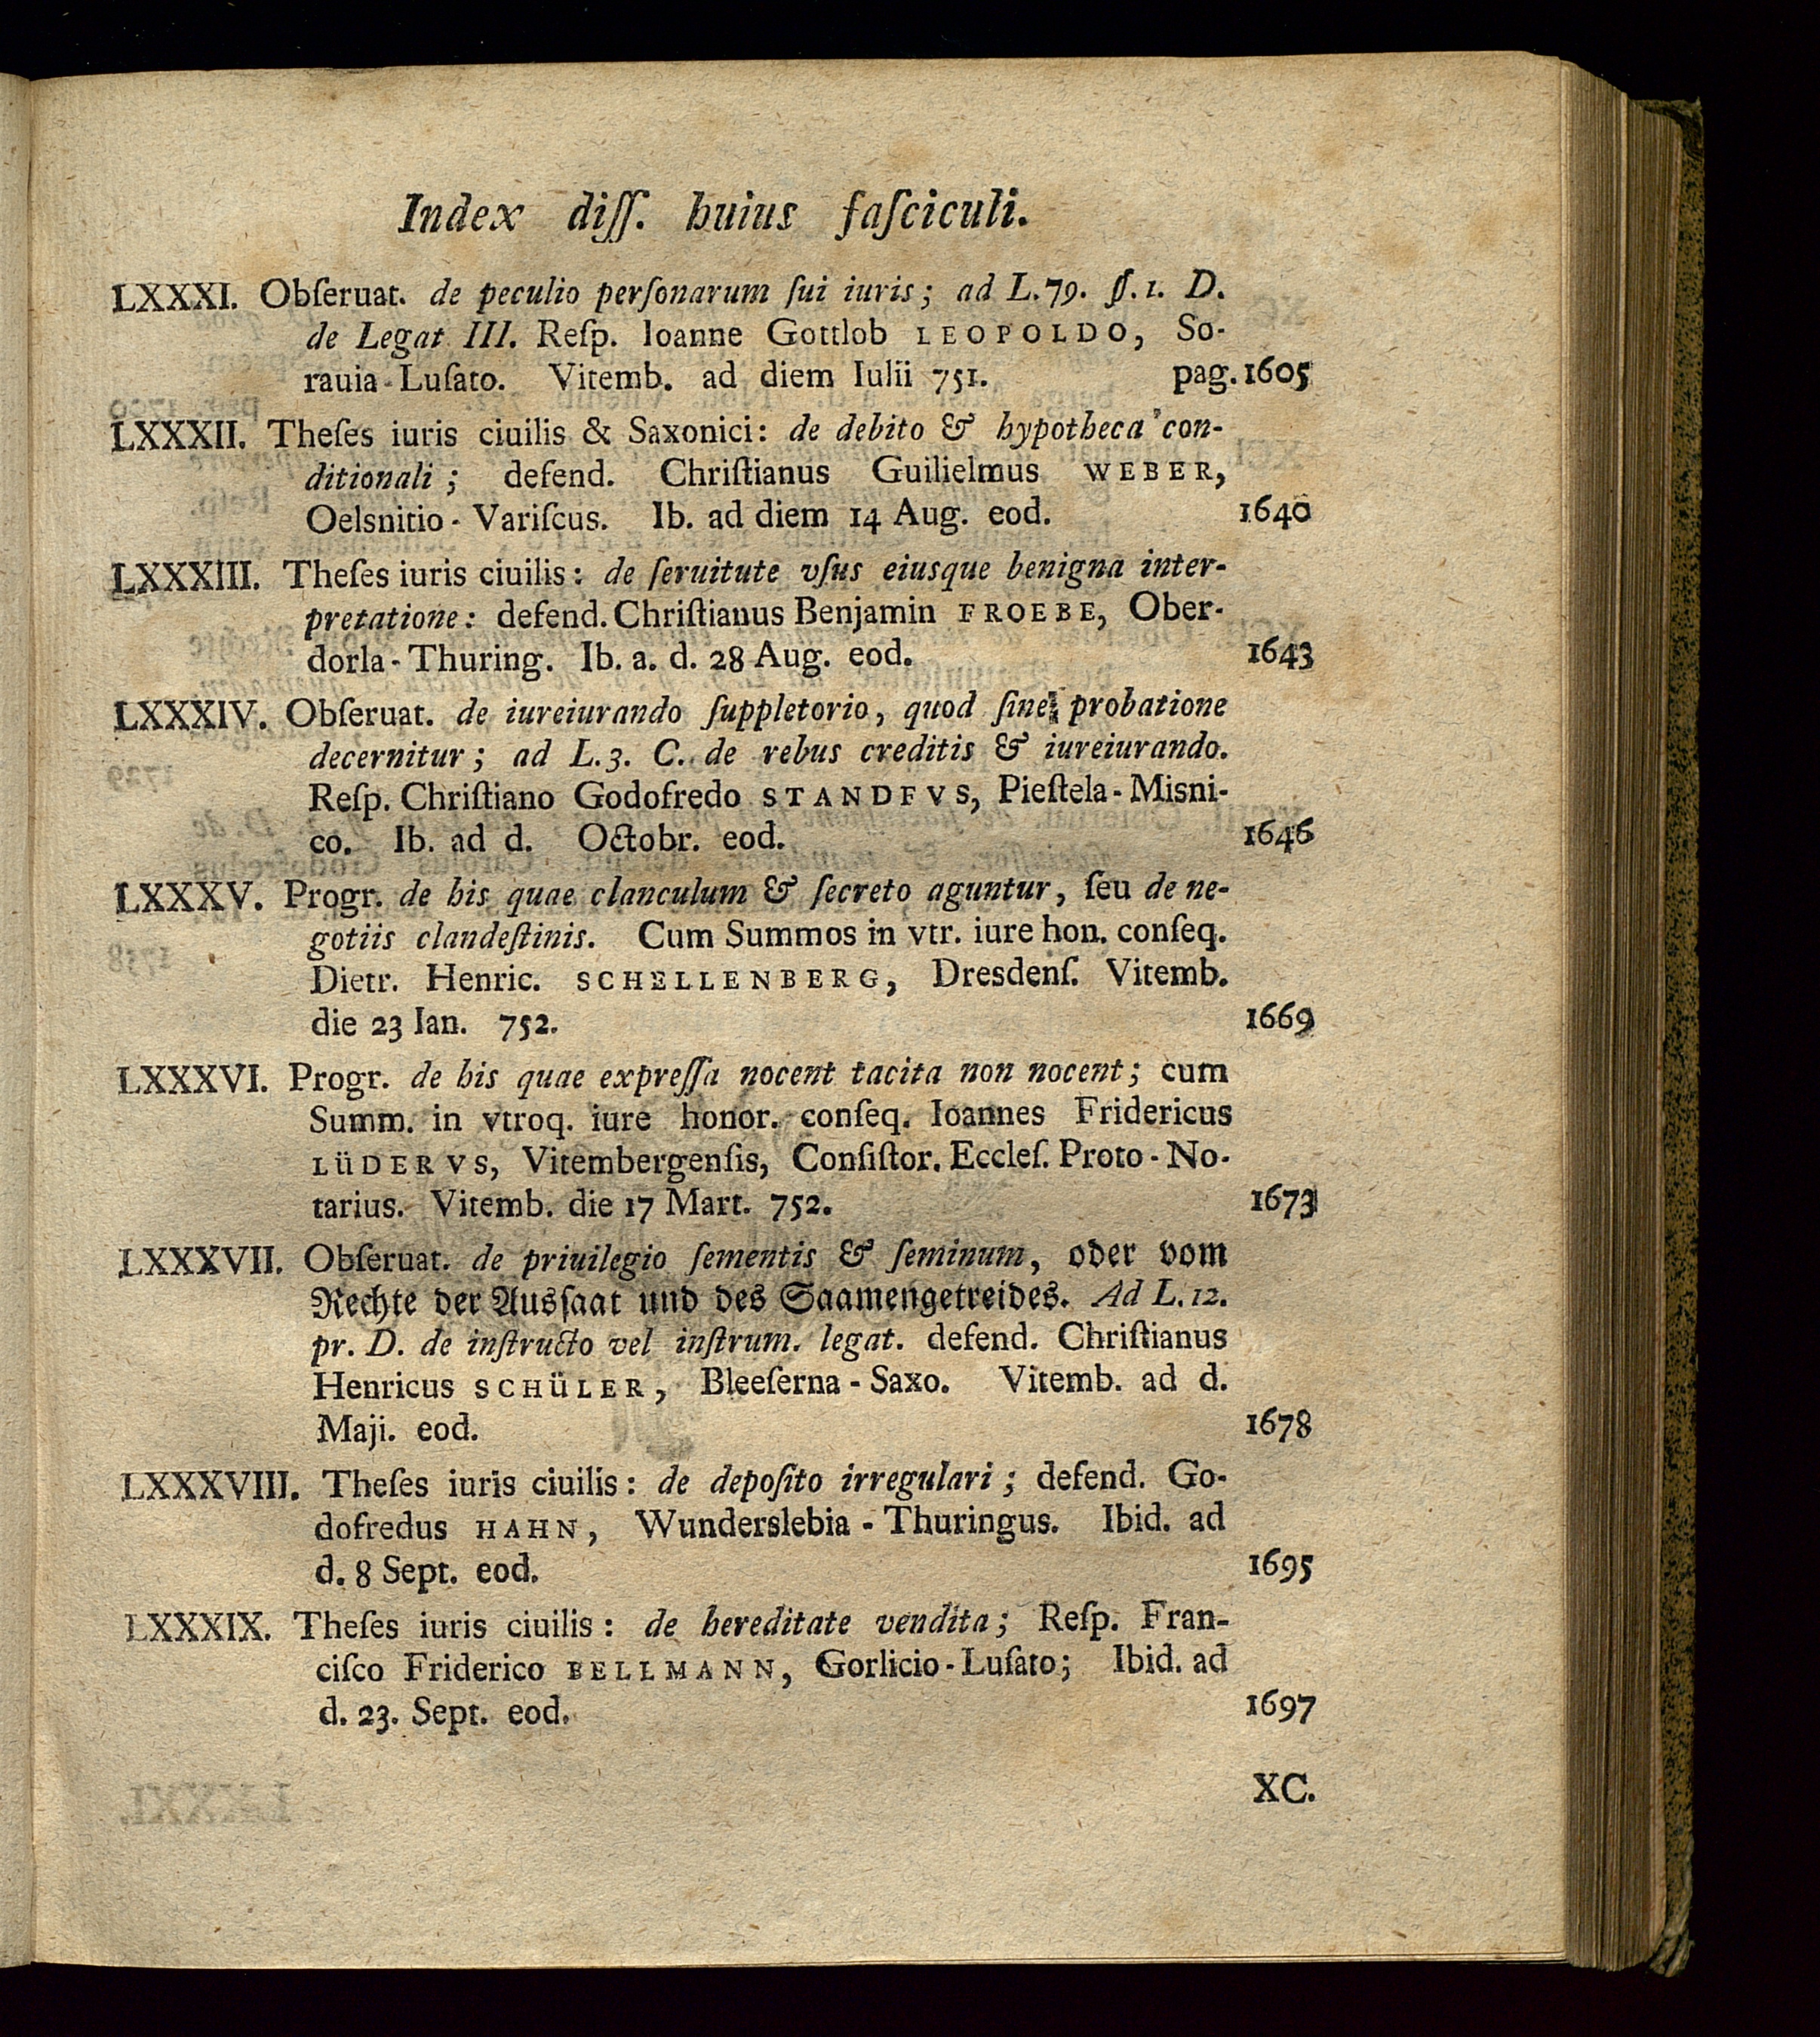 Index diſſ. huius faſciculi.
LXXXI. Obſeruat. de peculio perſonarum ſui iuris; ad L. 79. §. 1. D.
de Legat III. Reſp. Ioanne Gottlob LEOPOLDO, So-
rauia-Luſato. Vitemb. ad diem Iulii 751. pag. 1605
LXXXII. Theſes iuris ciuilis & Saxonici: de debito & hypotheca con-
ditionali; defend. Chriſtianus Guilielmus WEBER,
Oelsnitio-Variſcus. Ib. ad diem 14 Aug. eod. 1640
LXXXIII. Theſes iuris ciuilis: de ſeruitute vſus eiusque benigna inter-
pretatione: defend. Chriſtianus Benjamin FROEBE, Ober-
dorla-Thuring. Ib. a. d. 28 Aug. eod. 1643
LXXXIV. Obſeruat. de iureiurando ſuppletorio, quod ſine probatione
decernitur; ad L. 3. C. de rebus creditis & iureiurando.
Reſp. Chriſtiano Godofredo STANDFVS, Pieſtela-Misni-
co. Ib. ad d. Octobr. eod. 1646
LXXXV. Progr. de his quae clanculum & ſecreto aguntur, ſeu de ne-
gotiis clandeſtinis. Cum Summos in vtr. iure hon. conſeq.
Dietr. Henric. SCHELLENBERG, Dresdenſ. Vitemb.
die 23 Ian. 752. 1669
LXXXVI. Progr. de his quae expreſſa nocent tacita non nocent; cum
Summ. in vtroq. iure honor. conſeq. Ioannes Fridericus
LÜDERVS, Vitembergenſis, Conſiſtor. Eccleſ. Proto-No-
tarius. Vitemb. die 17 Mart. 752. 1673
LXXXVII. Obſeruat. de priuilegio ſementis & ſeminum, oder vom
Rechte der Ausſaat und des Saamengetreides. Ad L. 12.
pr. D. de inſtructo vel inſtrum. legat. defend. Chriſtianus
Henricus SCHÜLER, Bleeſerna-Saxo. Vitemb. ad d.
Maji. eod. 1678
LXXXVIII. Theſes iuris ciuilis: de depoſito irregulari; defend. Go-
dofredus HAHN, Wunderslebia-Thuringus. Ibid. ad
d. 8 Sept. eod. 1695
LXXXIX. Theſes iuris ciuilis: de hereditate vendita; Reſp. Fran-
ciſco Friderico BELLMANN, Gorlicio-Luſato; Ibid. ad
d. 23. Sept. eod. 1697
XC.